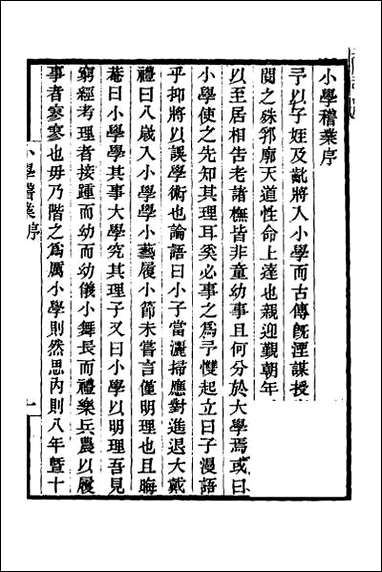 小學稽業序
予以子姪及齔將入小學而古傳既湮謀授
閱之殊邪廓天道性命上達也親迎覲朝年
以至居相告老諸憮皆非童幼事且何分於大學焉或曰
小學使之先知其理耳奚必事之為予憮起立曰子漫語
乎抑將以誤學術也論語曰小子當灑掃應對進退大戴
禮曰八歲入小學學小藝履小節未嘗言僅明理也且晦
菴曰小學學其事大學究其理子又曰小學以明理吾見
窮經考理者接踵而幼而幼儀小舞長而禮樂兵農以履
事者寥寥也毋乃階之為厲小學則然思內則八年暨十
小學稽業序
一